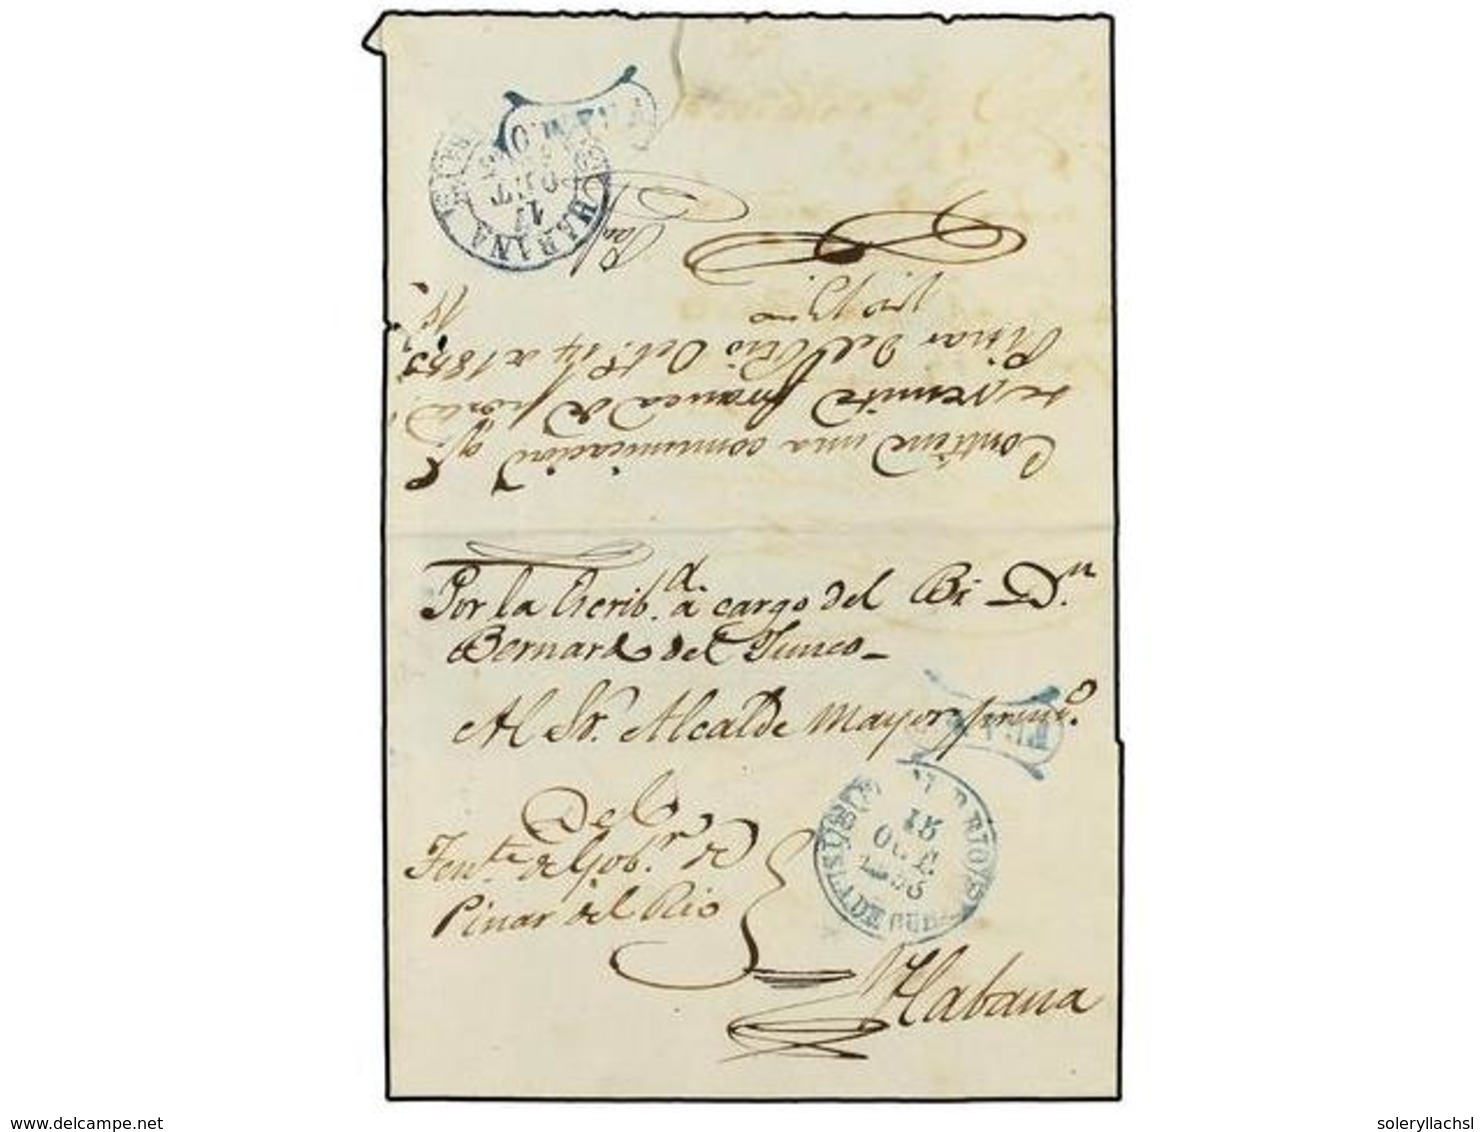 Contiene una comunicacion qe
se remite franca de porte
Pinar del Rio Octe 14 de 1855
Por la Escrib.d a cargo del Br Dn.
Bernardo del Junco_
Al Sr. Alcalde mayor primo.
Del
Tente. de Gobr. de
Pinar del Rio
Habana
15
OCT
1855
www.delcampe.net
soleryllachsl